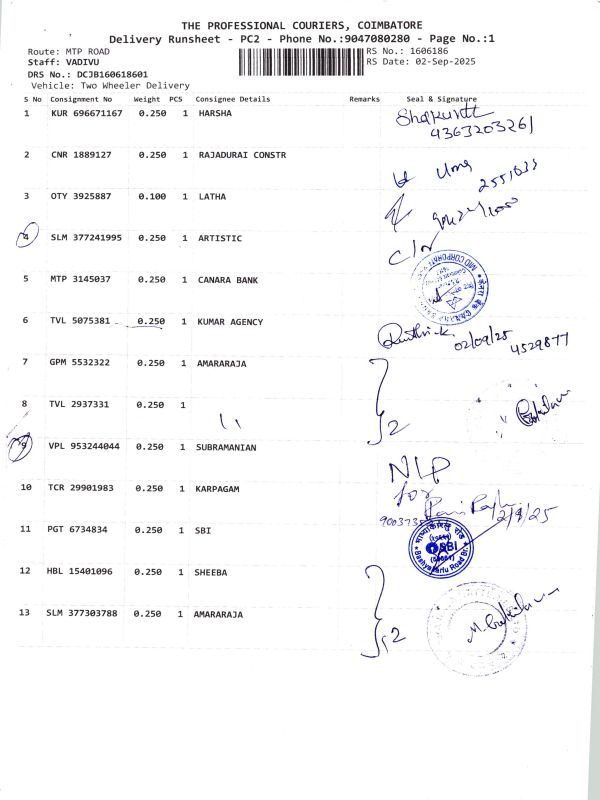 THE PROFESSIONAL COURIERS, COIMBATORE
Delivery Runsheet - PC2 - Phone No.:9047080280 - Page No.:1
Route: MTP ROAD RS No.: 1606186
Staff: VADIVU RS Date: 02-Sep-2025
DRS No.: DCJB160618601
Vehicle: Two Wheeler Delivery
S No Consignment No Weight PCS Consignee Details Remarks Seal & Signature
1 KUR 696671167 0.250 1 HARSHA
4363203261
2 CNR 1889127 0.250 1 RAJADURAI CONSTR
Uma
3 OTY 3925887 0.100 1 LATHA
4 SLM 377241995 0.250 1 ARTISTIC
C/N
5 MTP 3145037 0.250 1 CANARA BANK
6 TVL 5075381 0.250 1 KUMAR AGENCY
02/09/25
4529877
7 GPM 5532322 0.250 1 AMARARAJA
8 TVL 2937331 0.250 1
2
9 VPL 953244044 0.250 1 SUBRAMANIAN
NLP
10 TCR 29901983 0.250 1 KARPAGAM
for
2/9/25
11 PGT 6734834 0.250 1 SBI
SBI
12 HBL 15401096 0.250 1 SHEEBA
13 SLM 377303788 0.250 1 AMARARAJA
2